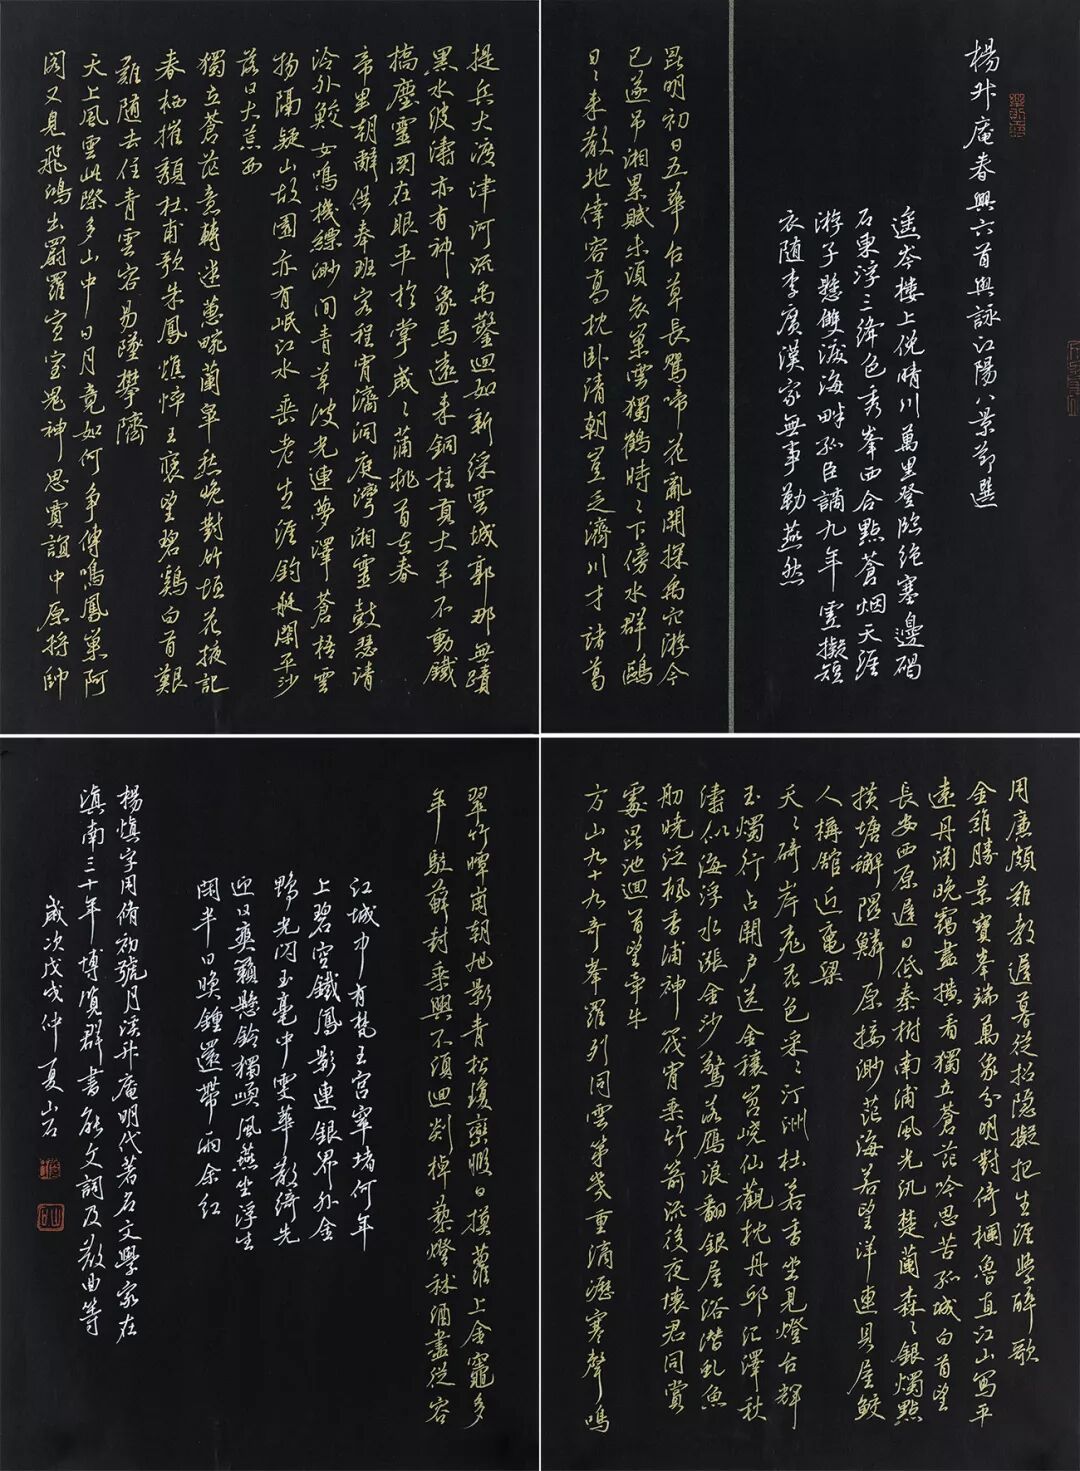 楊升庵春興六首與詠江陽八景節選
遙岑樓上俛晴川萬里登臨絕塞邊碣
石東浮三絳色秀峯西合點蒼烟天涯
游子懸雙淚海畔孤臣謫九年虛擬短
衣隨李廣漢家無事勒燕然
昆明初日五華台草長鶯啼花亂開探禹穴游今
已遂弔湘累賦未須哀巢雲獨鶴時〻下傍水群鷗
日〻來散地偉容高枕臥清朝豈乏濟川才諸葛
提兵大渡津河流禹鑿迴如新綵雲城郭那無蹟
黑水波濤亦有神象馬遠來銅柱貢犬羊不動鐵
橋塵靈關在眼平於掌歲〻蒲桃春
帝里朝辭供奉班客程宵濟洞庭灣湘靈鼓瑟清
泠外鮫女鳴機縹渺間青草波光連夢澤蒼梧雲
物隔疑山故園亦有岷江水垂老生涯釣艇閑平沙
落日大荒西
獨立蒼茫意轉迷蕙畹蘭皐愁晚對竹垣花掖記
春栖摧頹杜甫歌朱鳳憔悴王褒望碧鷄白首艱
難隨去住青雲容易墮攀躋
天上風雲此際多山中日月竟如何爭傳鳴鳳巢阿
閣又見飛鴻出罻羅宣室鬼神思賈誼中原將帥
用廉頗難教遲暮從招隱擬把生涯學醉歌
金雞勝景寶峯端萬象分明對倚欄魯直江山寫平
遠丹淵晚靄盡橫看獨立蒼茫吟思苦孤城白首望
長安西原遲日低秦樹南浦風光汎楚蘭森〻銀燭點
橫塘隈鱗原接渺茫海若望洋連貝屋鮫
人構館近黿梁
夭〻碕岸飛花色采〻汀洲杜若香坐見燈台輝
玉燭行占開戶送金穰岧嶢仙觀枕丹邱汇澤秋
濤似海浮水漲金沙驚落雁浪翻銀屋浴潛虬魚
舠曉泛楓香浦神筏宵乘竹箭流後夜懷君同賞
處昆池迴首望牽牛
方山九十九奇峯羅列同雲第幾重滴瀝寒聲鳴
翠竹曈朝旭影青松瓊欒暇日捫蘿上金竈多
年駐蘚封乘興不須迴剡棹藜燈秫酒盡從容
江城中有梵王宮窣堵何年
上碧空鐵鳳影連銀界外金
鴨光閃玉毫中雯華散綺先
迎日爽籟懸鈴獨嘯風燕坐浮生
閑半日喚鐘還帶雨余紅
楊慎字用脩初號月溪升庵明代著名文學家在
滇南三十年博覽群書能文詞及散曲等
歲次戊戌仲夏山石